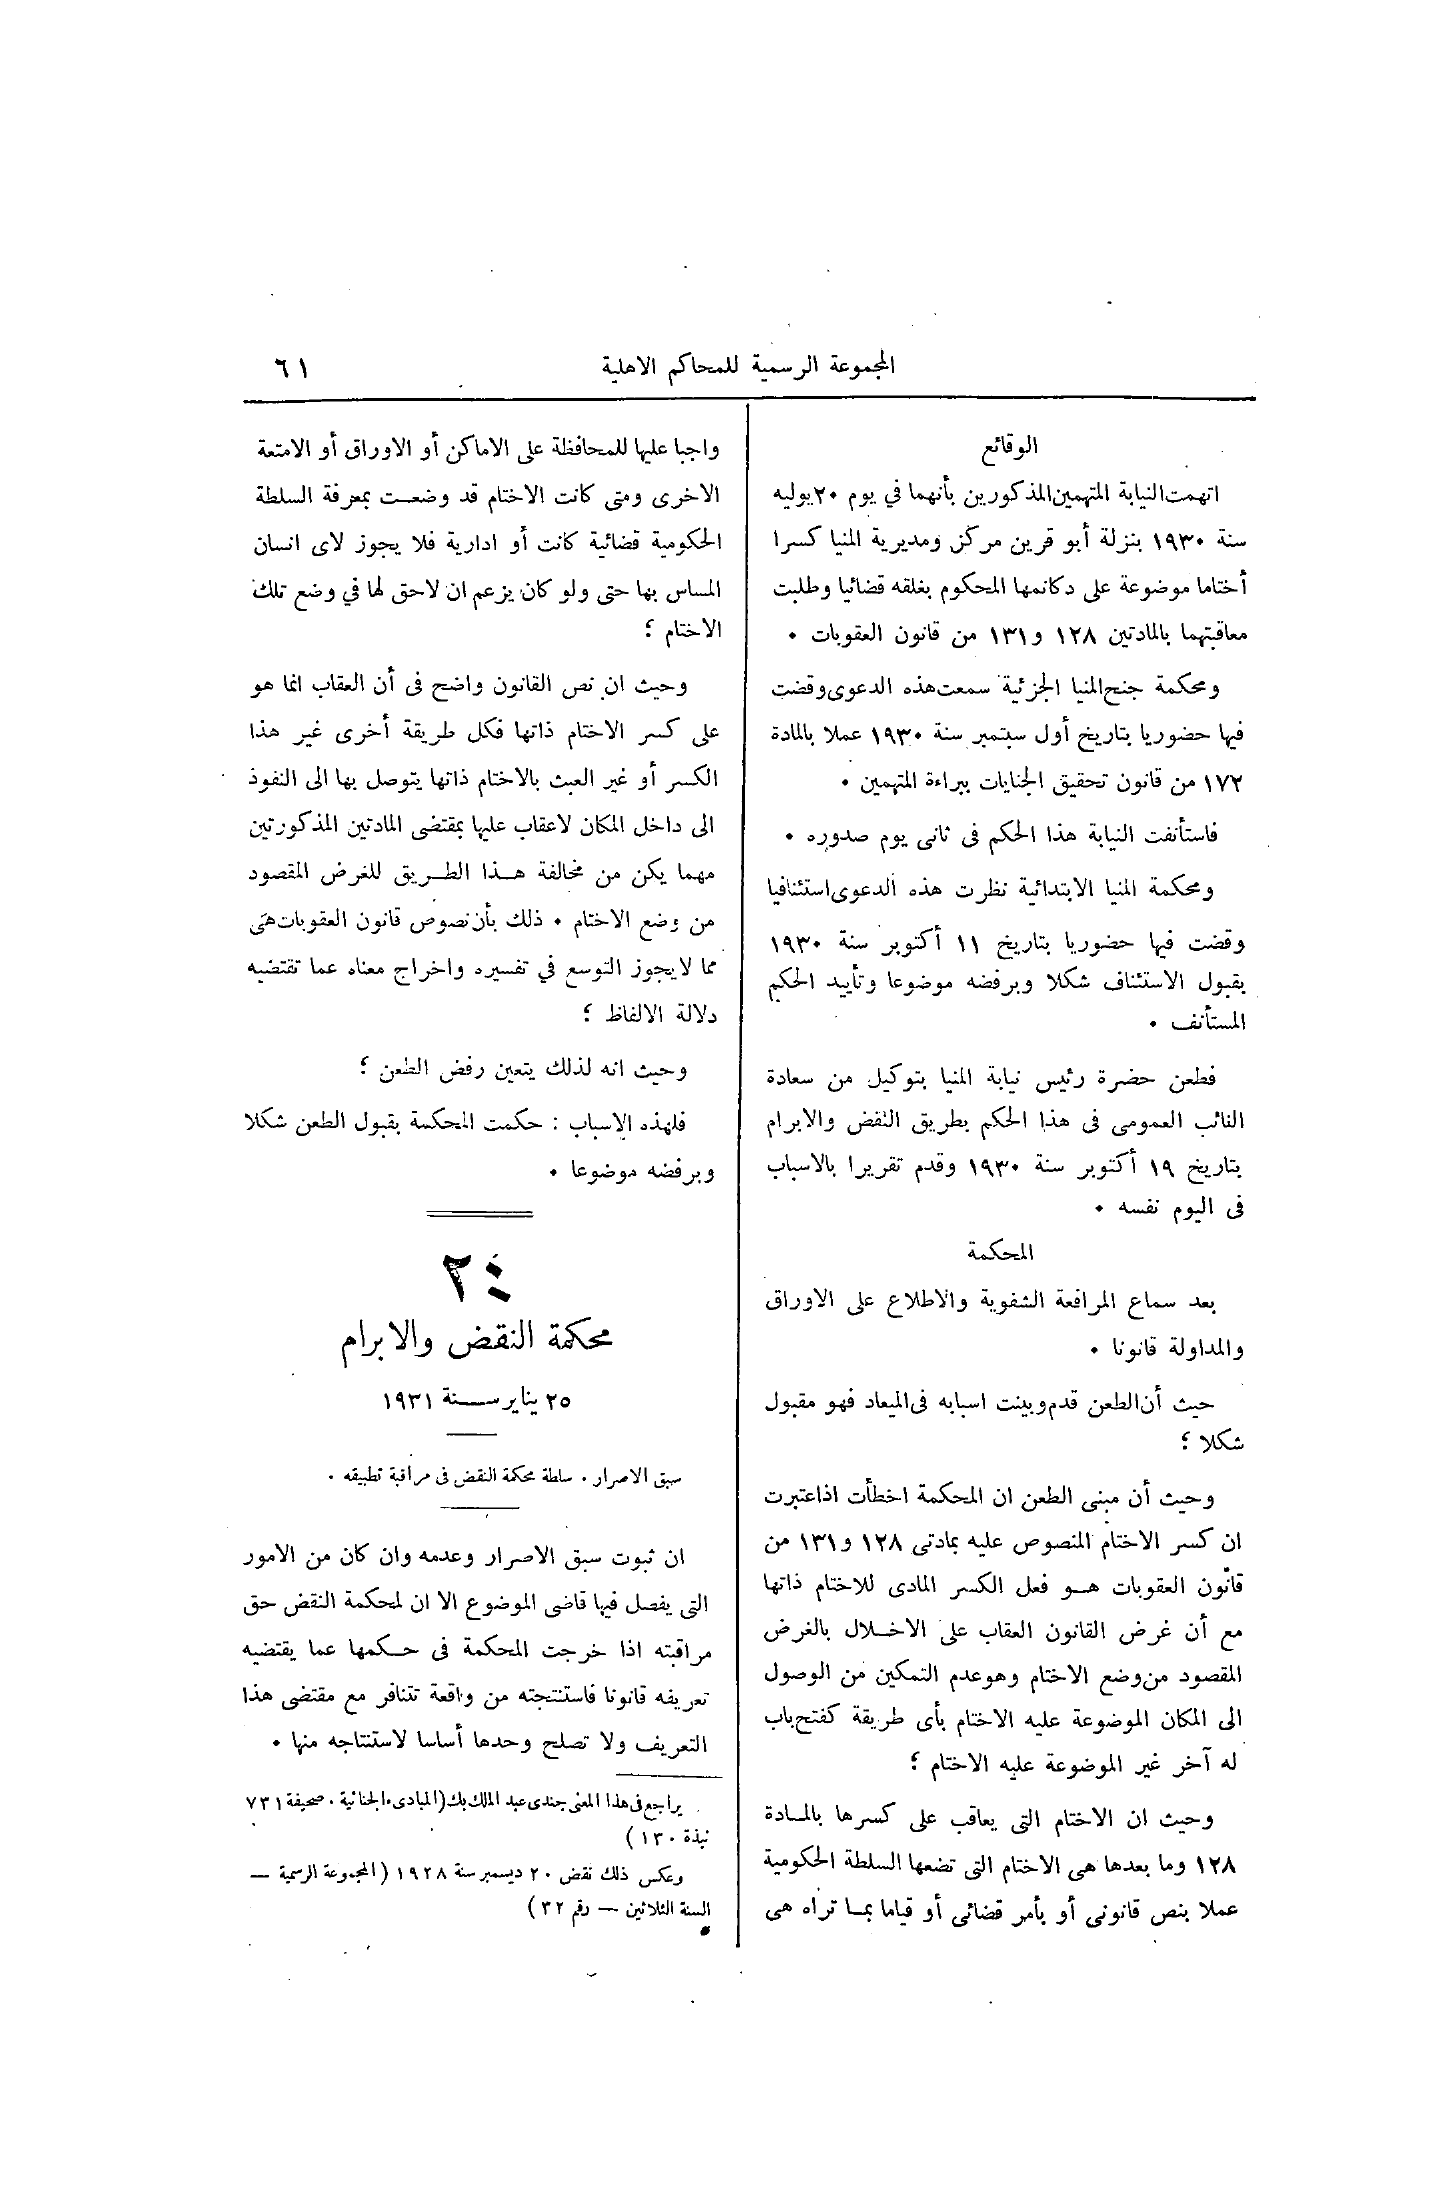 المجموعة الرسمية للمحاكم الاهلية ٦١
الوقائع
اتهمت النيابة المتهمين المذكورين بأنهما في يوم ٢٠ يوليه
سنة ١٩٣٠ بنزلة أبو قرين مركز ومديرية المنيا كسرا
أختاما موضوعة على دكانهما المحكوم بغلقه قضائيا وطلبت
معاقبتهما بالمادتين ١٢٨ و١٣١ من قانون العقوبات ٠
ومحكمة جنح المنيا الجزئية سمعت هذه الدعوى وقضت
فيها حضوريا بتاريخ أول سبتمبر سنة ١٩٣٠ عملا بالمادة
١٧٢ من قانون تحقيق الجنايات ببراءة المتهمين ٠
فاستأنفت النيابة هذا الحكم فى ثانى يوم صدوره ٠
ومحكمة المنيا الابتدائية نظرت هذه الدعوى استئنافيا
وقضت فيها حضوريا بتاريخ ١١ أكتوبر سنة ١٩٣٠
بقبول الاستئناف شكلا وبرفضه موضوعا وتأييد الحكم
المستأنف ٠
فطعن حضرة رئيس نيابة المنيا بتوكيل من سعادة
النائب العمومى فى هذا الحكم بطريق النقض والابرام
بتاريخ ١٩ أكتوبر سنة ١٩٣٠ وقدم تقريرا بالاسباب
فى اليوم نفسه ٠
المحكمة
بعد سماع المرافعة الشفوية والاطلاع على الاوراق
والمداولة قانونا ٠
حيث أن الطعن قدم وبينت اسبابه فى الميعاد فهو مقبول
شكلا ؛
وحيث أن مبنى الطعن ان المحكمة اخطأت اذ اعتبرت
ان كسر الاختام المنصوص عليه بمادتى ١٢٨ و١٣١ من
قانون العقوبات هو فعل الكسر المادى للاختام ذاتها
مع أن غرض القانون العقاب على الاخلال بالغرض
المقصود من وضع الاختام وهو عدم التمكين من الوصول
الى المكان الموضوعة عليه الاختام بأى طريقة كفتح باب
له آخر غير الموضوعة عليه الاختام ؛
وحيث ان الاختام التى يعاقب على كسرها بالمادة
١٢٨ وما بعدها هى الاختام التى تضعها السلطة الحكومية
عملا بنص قانونى أو بأمر قضائى أو قياما بما تراه هى
واجبا عليها للمحافظة على الاماكن أو الاوراق أو الامتعة
الاخرى ومتى كانت الاختام قد وضعت بمعرفة السلطة
الحكومية قضائية كانت أو ادارية فلا يجوز لاى انسان
المساس بها حتى ولو كان يزعم ان لاحق لها في وضع تلك
الاختام ؛
وحيث ان نص القانون واضح فى أن العقاب انما هو
على كسر الاختام ذاتها فكل طريقة أخرى غير هذا
الكسر أو غير العبث بالاختام ذاتها يتوصل بها الى النفوذ
الى داخل المكان لاعقاب عليها بمقتضى المادتين المذكورتين
مهما يكن من مخالفة هذا الطريق للغرض المقصود
من وضع الاختام ٠ ذلك بأن نصوص قانون العقوبات هى
مما لايجوز التوسع في تفسيره واخراج معناه عما تقتضيه
دلالة الالفاظ ؛
وحيث انه لذلك يتعين رفض الطعن ؛
فلهذه الاسباب : حكمت المحكمة بقبول الطعن شكلا
وبرفضه موضوعا ٠
٢٤
محكمة النقض والابرام
٢٥ يناير سنة ١٩٣١
سبق الاصرار ٠ سلطة محكمة النقض فى مراقبة تطبيقه ٠
ان ثبوت سبق الاصرار وعدمه وان كان من الامور
التى يفصل فيها قاضى الموضوع الا ان لمحكمة النقض حق
مراقبته اذا خرجت المحكمة فى حكمها عما يقتضيه
تعريفه قانونا فاستنتجته من واقعة تتنافر مع مقتضى هذا
التعريف ولا تصلح وحدها أساسا لاستنتاجه منها ٠
يراجع فى هذا المعنى جندى عبد الملك بك (المبادىء الجنائية ٠ صحيفة ٧٣١
نبذة ١٣٠)
وعكس ذلك نقض ٢٠ ديسمبر سنة ١٩٢٨ (المجموعة الرسمية —
السنة الثلاثين — رقم ٣٢)